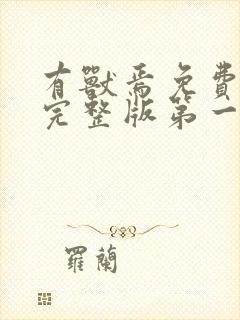 有獸焉免費
完整版第一
羅蘭